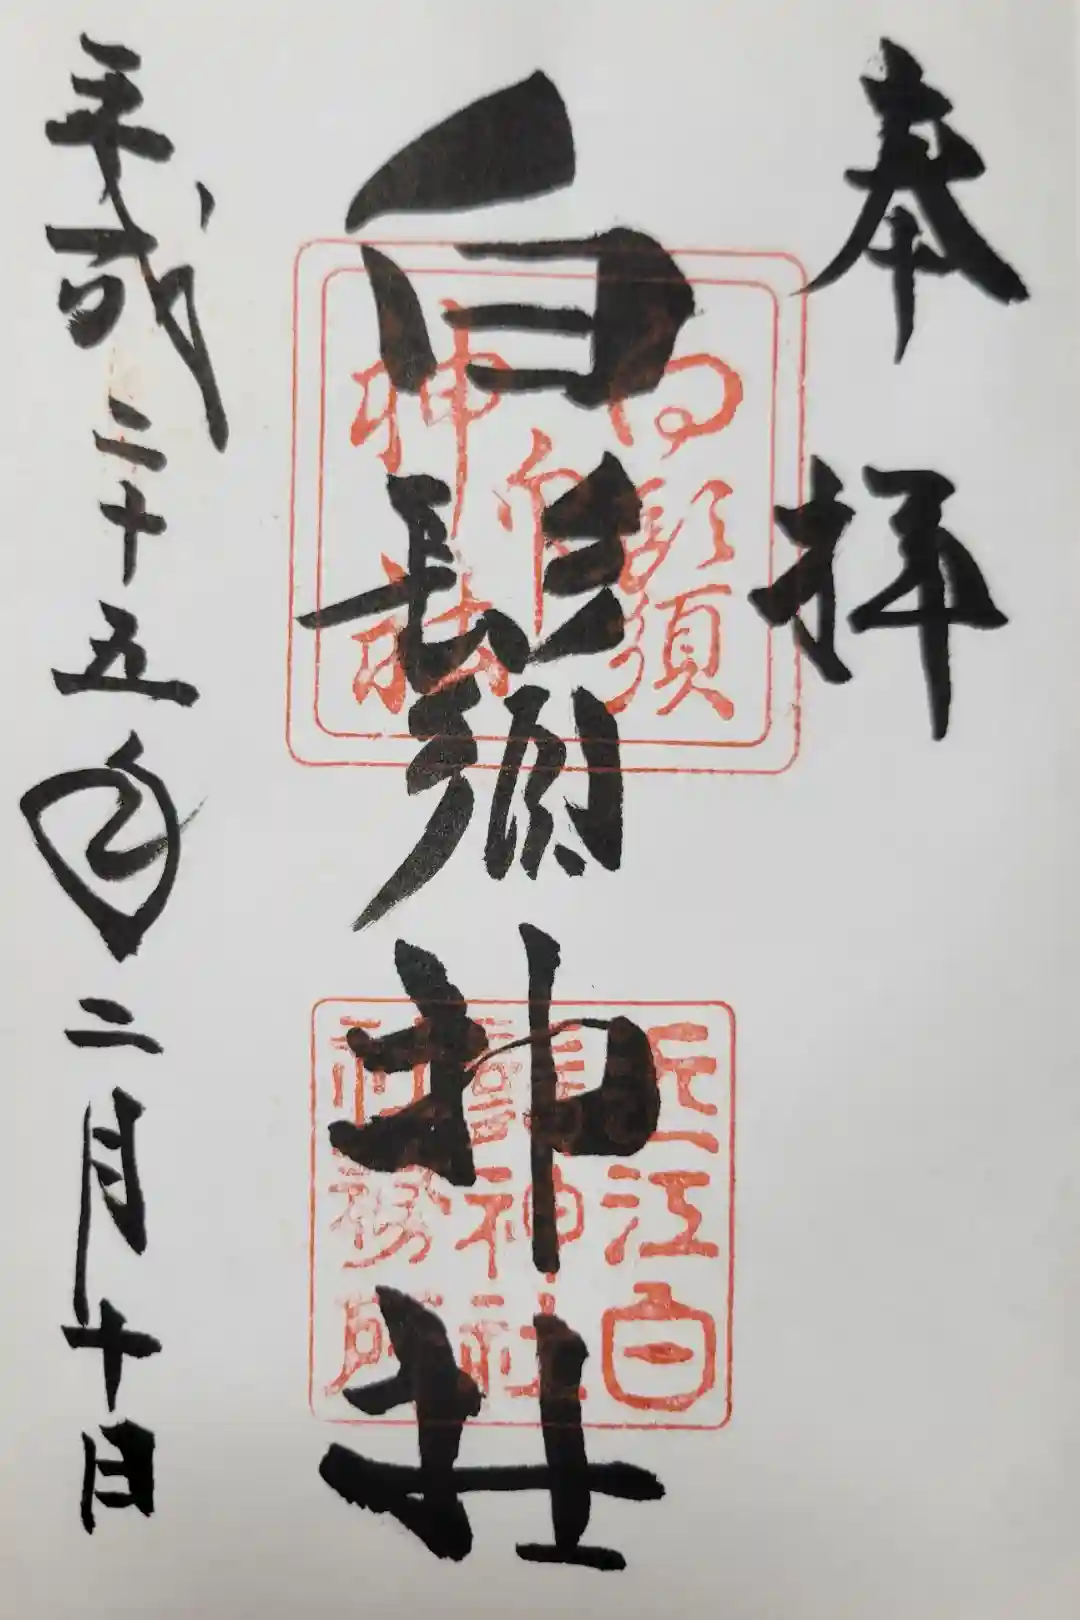 奉拝
白髭神社
平成二十五年二月十日
白鬚
神社
印
近江白
鬚神社
社務所